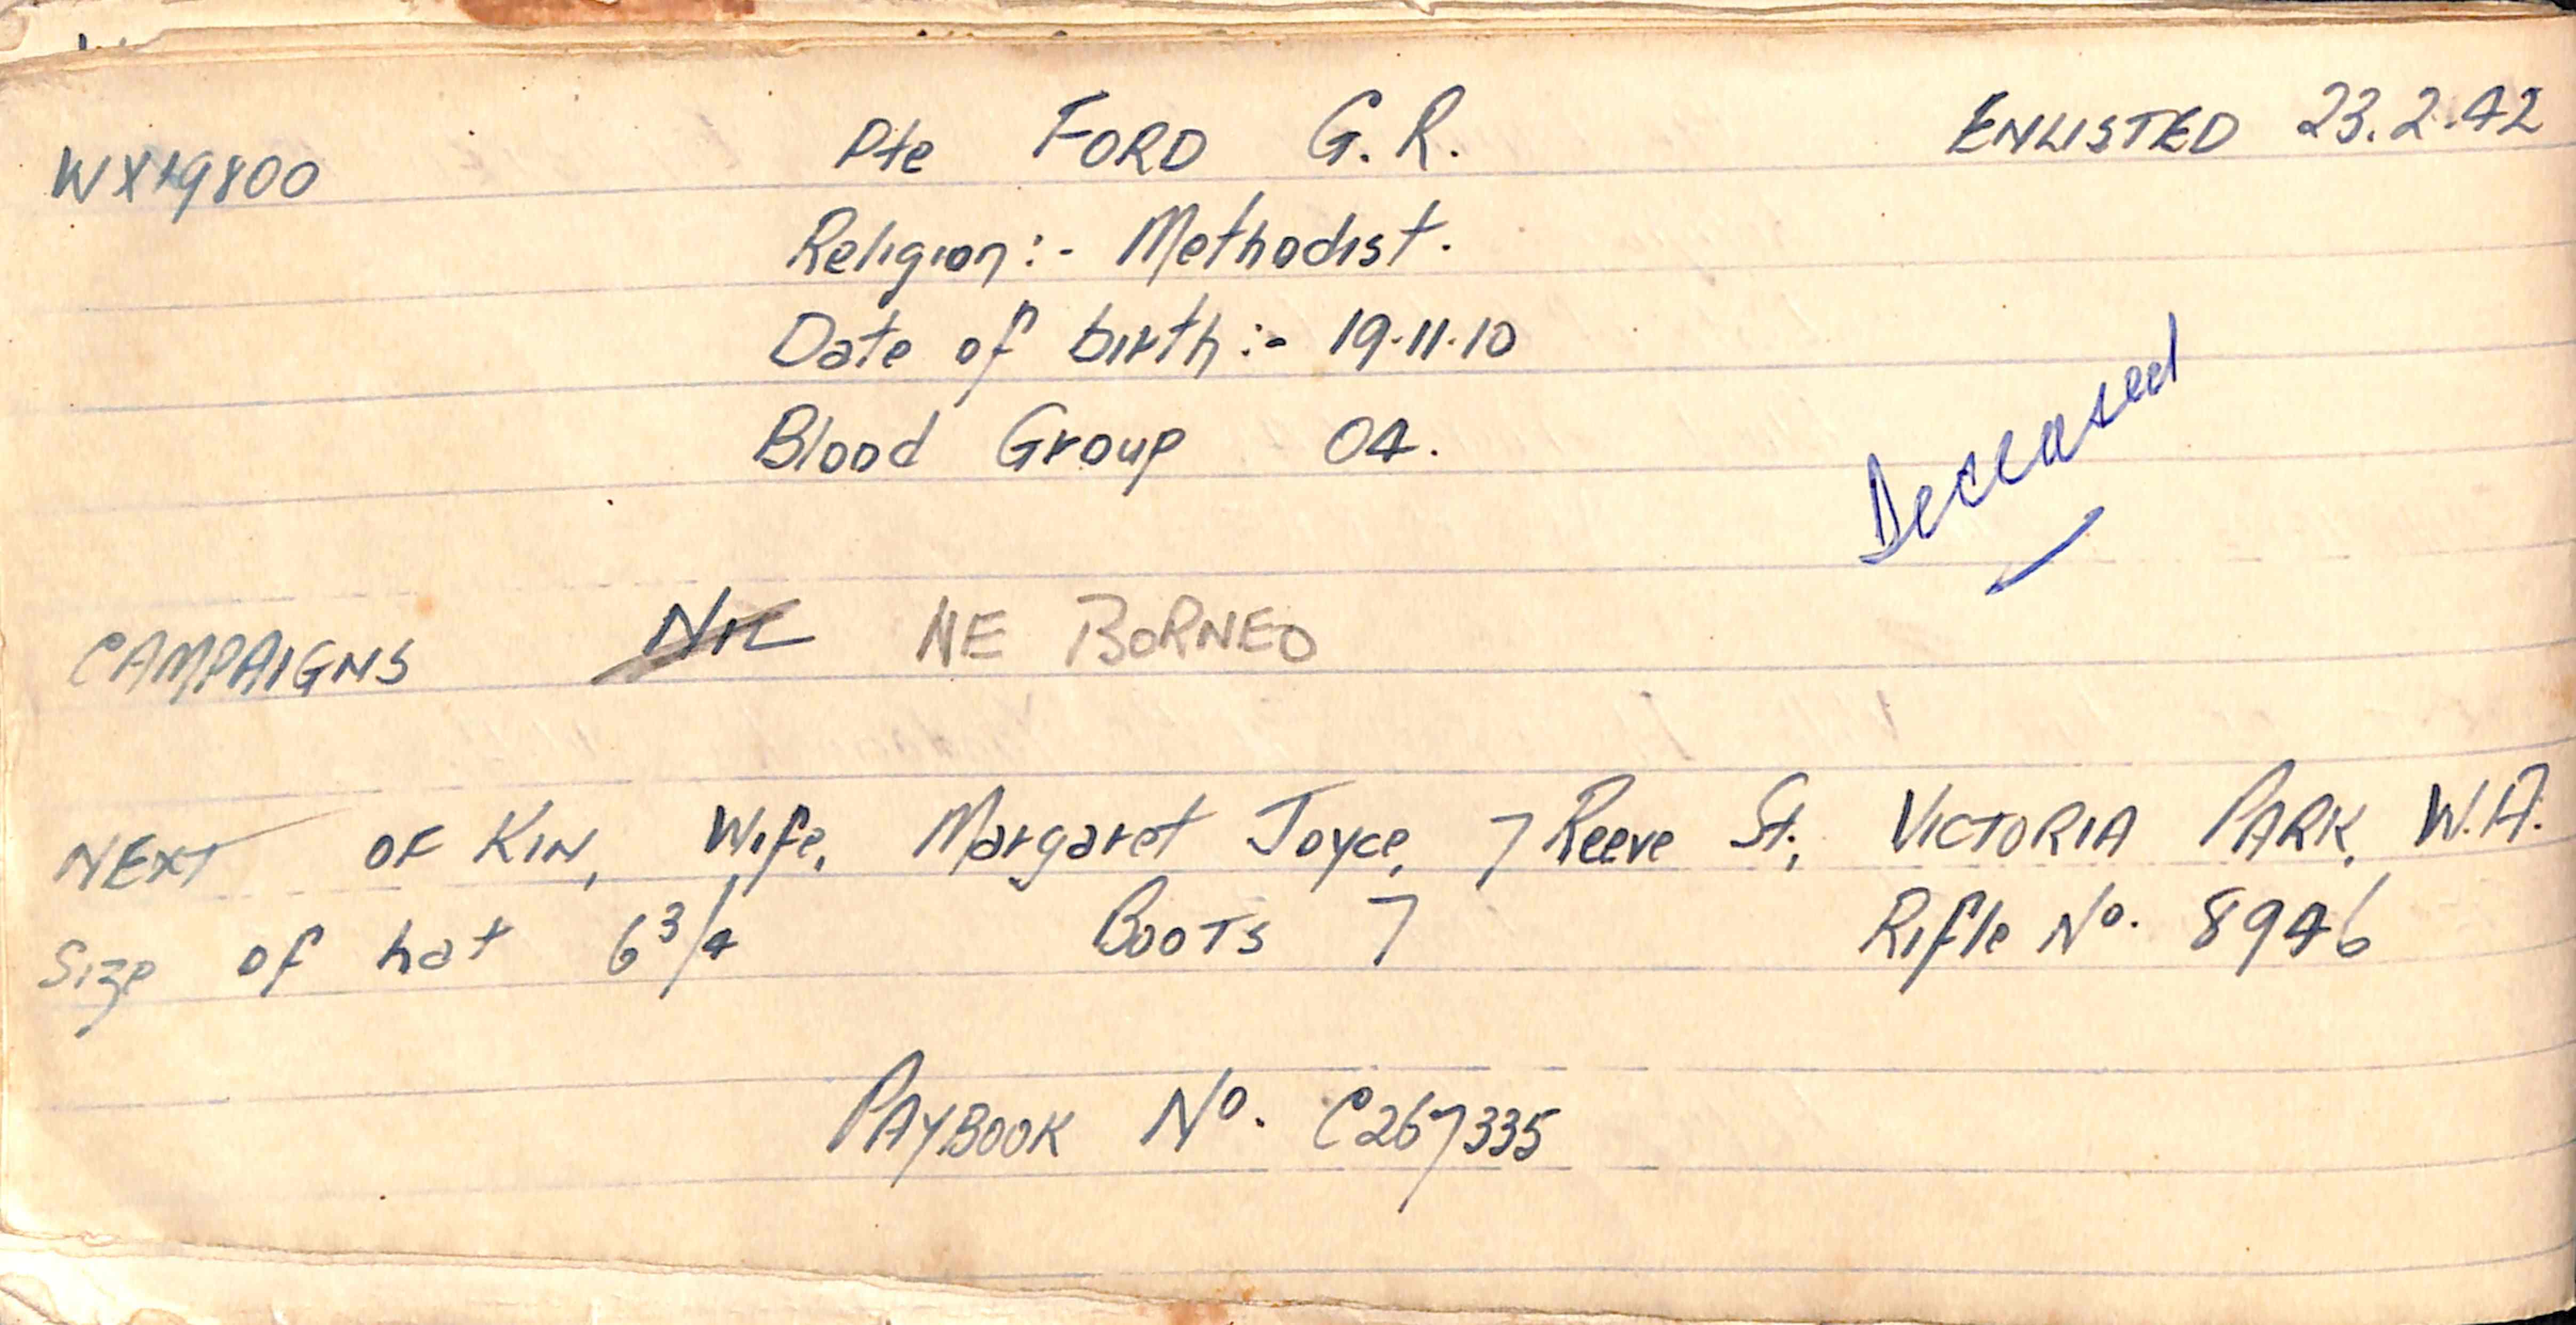 Pte FORD G.R. ENLISTED 23.2.42
Religion:- Methodist.
Date of birth:- 19.11.10
Blood Group O4.
Deceased
CAMPAIGNS NIL NE BORNEO
NEXT OF KIN, Wife, Margaret Joyce, 7 Reeve St., VICTORIA PARK, W.A.
Size of hat 6 3/4 BOOTS 7 Rifle No. 8946
PAYBOOK No. C267335